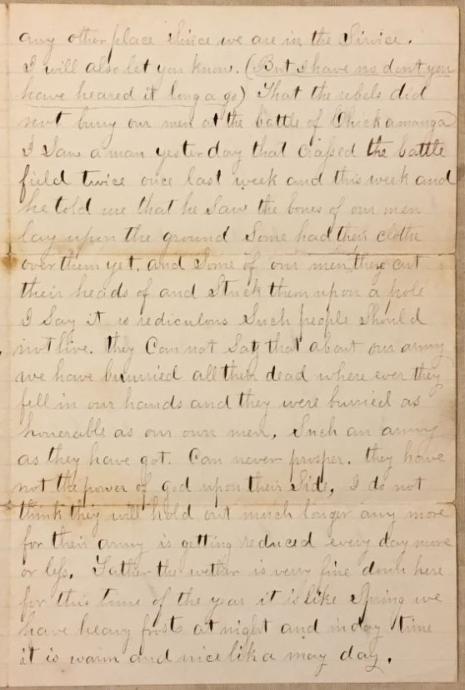 any other place since we are in the Sirvice.
I will also let you know. (But I have no dout you
have heared it long a go) That the rebels did
not bury our men at the battle of Chickamauga
I Saw a man yesterday that crossed the battle
field twice once last week and this week and
he told me that he Saw the bones of our men
lay upon the ground Some had their clothe
over them yet. and Some of our men, they cut
their heads of and Stuck them upon a pole
I Say it is rediculous Such people Should
not live. they Can not Say that about our army
we have burried all their dead where ever they
fell in our hands and they were burried as
honerable as our own men. Such an army
as they have got. Can never prosper. they have
not the power of god upon their Side, I do not
think they will hold out much longer any more
for their army is getting reduced every day more
or less. Father the wether is very fine down here
for this time of the year it is like Spring we
have heavy frost at night and in day time
it is warm and nice lik a may day.